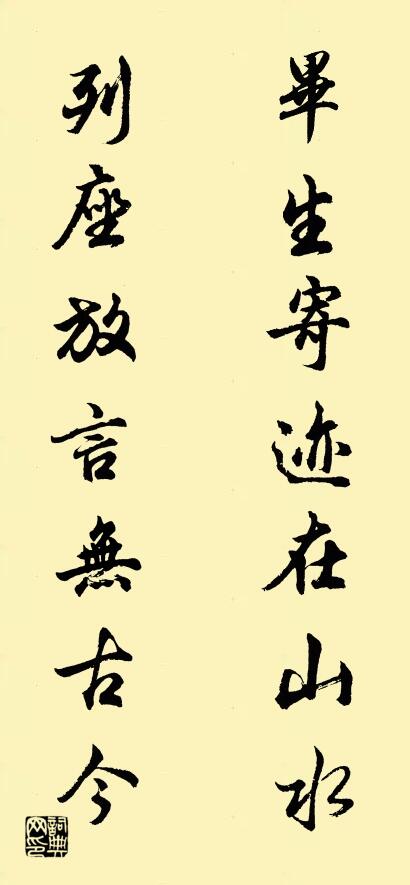 畢生寄迹在山水
列座放言無古今
詞典網印